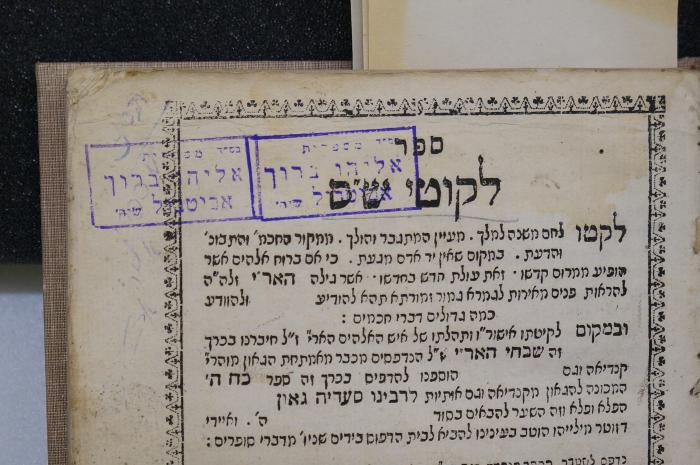 בס״ד מספרית
אליהו ברוך
אביטבול שיה׳
בס״ד מספרית
אליהו ברוך
שיה׳
ספר
לקוטי ש״ס
לקטו לחם משנה למלך. מעיין המתגבר והולך. ממקור החכמ׳ והתבונ׳
והדעת. במקום שאין יד אדם מגעת. כי אם ברוח אלהים אשר
הופיע ממרום קדשו. זאת עולת חדש בחדשו. אשר גילה האר״י זלה״ה
להראות פנים מאירות לגמרא גמור זמורתא תהא להודיע ולהוודע
כמה גדולים דברי חכמים:
ובמקום לקיטתו אישור״ו ותהלתו של איש האלהים האר״י ז״ל חיברנו בכרך
זה שבחי האר״י ז״ל הנדפסים מכבר מאמתחת הגאון מוהר״י
קנדיאה וגם הוספנו להדפיס בכרך זה ספר כח ה׳
המכונה להגאון מקנדיאה וגם אותיות לרבינו סעדיה גאון
הפלא ופלא וזה השער להבאים בסוד ה׳. ואיידי
דזוטר מילייהו הוטב בעינינו להביא לבית הדפוס בידים שניו׳ מדברי סופרים: